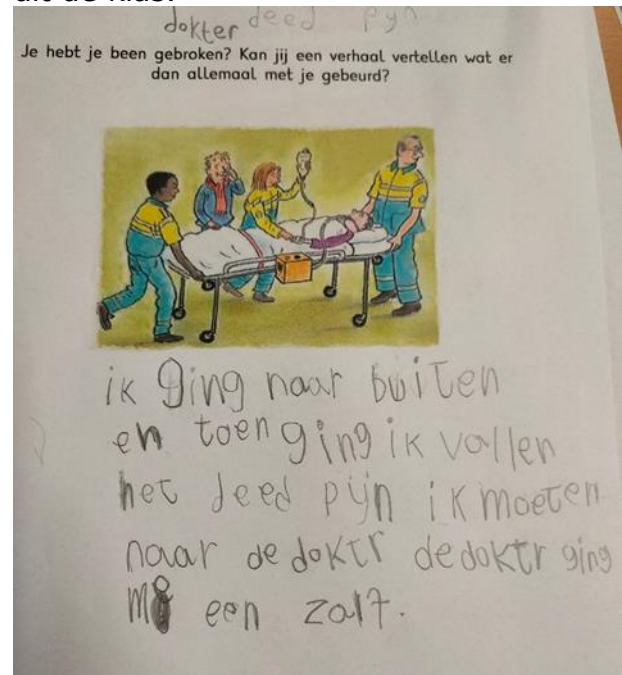 uit de klas.
dokter deed pijn
Je hebt je been gebroken? Kan jij een verhaal vertellen wat er
dan allemaal met je gebeurd?
ik ging naar buiten
en toen ging ik vallen
het deed pijn ik moeten
naar de doktr de doktr ging
me een zalf.